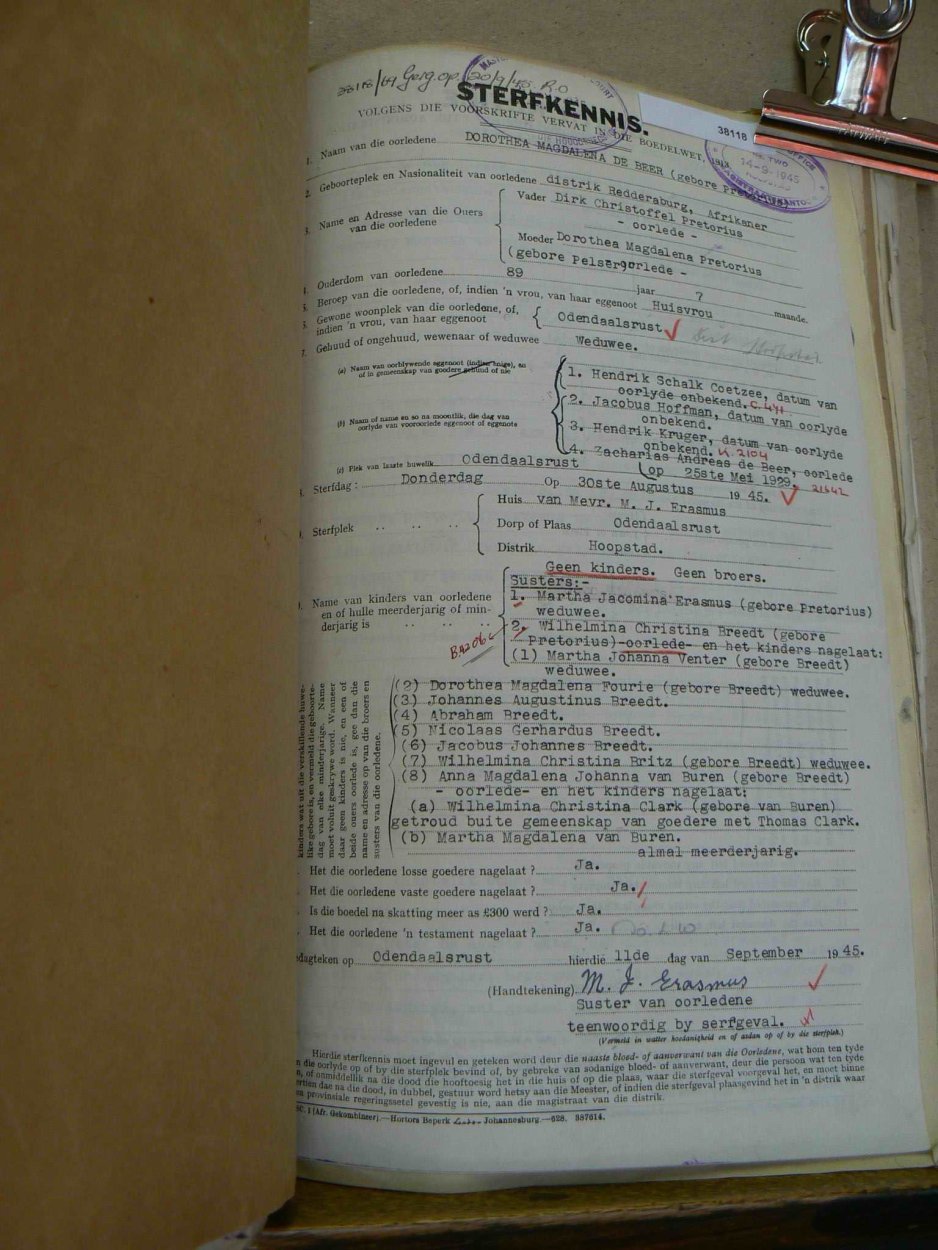 38118/49 Gerg. op. 20/9/45 R.O
STERFKENNIS.
VOLGENS DIE VOORSKRIFTE VERVAT IN DIE BOEDELWET, 1913
38118
14-9-1945
1. Naam van die oorledene DOROTHEA MAGDALENA DE BEER (gebore Pretorius)
2. Geboorteplek en Nasionaliteit van oorledene distrik Reddersburg, Afrikaner
3. Name en Adresse van die Ouers van die oorledene
Vader Dirk Christoffel Pretorius
- oorlede -
Moeder Dorothea Magdalena Pretorius
(gebore Pelser) oorlede -
4. Ouderdom van oorledene 89 jaar 7 maande.
5. Beroep van die oorledene, of, indien 'n vrou, van haar eggenoot Huisvrou
Gewone woonplek van die oorledene, of, indien 'n vrou, van haar eggenoot Odendaalsrust
7. Gehuud of ongehuud, wewenaar of weduwee Weduwee.
(a) Naam van oorblywende eggenoot (indien enige), en of in gemeenskap van goedere gehuud of nie
(b) Naam of name en so na moontlik, die dag van oorlyde van vooroorlede eggenoot of eggenote
1. Hendrik Schalk Coetzee, datum van
oorlyde onbekend. C.441
2. Jacobus Hoffman, datum van oorlyde
onbekend.
3. Hendrik Kruger, datum van oorlyde
onbekend. K.2104
4. Zacharias Andreas de Beer, oorlede
op 25ste Mei 1929. 21642
(c) Plek van laaste huwelik Odendaalsrust
Sterfdag: Donderdag Op 30ste Augustus 1945.
Sterfplek
Huis van Mevr. M. J. Erasmus
Dorp of Plaas Odendaalsrust
Distrik Hoopstad.
Name van kinders van oorledene en of hulle meerderjarig of minderjarig is
Geen kinders. Geen broers.
Susters:-
1. Martha Jacomina Erasmus (gebore Pretorius)
weduwee.
B.4206
2. Wilhelmina Christina Breedt (gebore
Pretorius)-oorlede- en het kinders nagelaat:
(1) Martha Johanna Venter (gebore Breedt)
weduwee.
(2) Dorothea Magdalena Fourie (gebore Breedt) weduwee.
(3) Johannes Augustinus Breedt.
(4) Abraham Breedt.
(5) Nicolaas Gerhardus Breedt.
(6) Jacobus Johannes Breedt.
(7) Wilhelmina Christina Britz (gebore Breedt) weduwee.
(8) Anna Magdalena Johanna van Buren (gebore Breedt)
- oorlede- en het kinders nagelaat:
(a) Wilhelmina Christina Clark (gebore van Buren)
getroud buite gemeenskap van goedere met Thomas Clark.
(b) Martha Magdalena van Buren.
almal meerderjarig.
kinders wat uit die verskillende huwe-
like gebore is, en vermeld die geboorte-
dag van elke minderjarige. Name
moet voluit geskrywe word. Wanneer
daar geen kinders is nie, en een of
beide ouers oorlede is, gee dan die
name en adresse op van die broers en
susters van die oorledene.
Het die oorledene losse goedere nagelaat? Ja.
Het die oorledene vaste goedere nagelaat? Ja.
Is die boedel na skatting meer as £300 werd? Ja.
Het die oorledene 'n testament nagelaat? Ja.
dagteken op Odendaalsrust hierdie 11de dag van September 1945.
(Handtekening) M. J. Erasmus
Suster van oorledene
teenwoordig by serfgeval.
(Vermeld in watter hoedanigheid en of aldan op of by die sterfplek.)
Hierdie sterfkennis moet ingevul en geteken word deur die naaste bloed- of aanverwant van die Oorledene, wat hom ten tyde
die oorlyde op of by die sterfplek bevind of, by gebreke van sodanige bloed- of aanverwant, deur die persoon wat ten tyde
of onmiddellik na die dood die hooftoesig het in die huis of op die plaas, waar die sterfgeval voorgeval het, en moet binne
ertien dae na die dood, in dubbel, gestuur word hetsy aan die Meester, of indien die sterfgeval plaasgevind het in 'n distrik waar
en provinsiale regeringssetel gevestig is nie, aan die magistraat van die distrik.
C. 1 [Afr. Gekombineer].—Hortors Beperk Johannesburg—628. 387614.